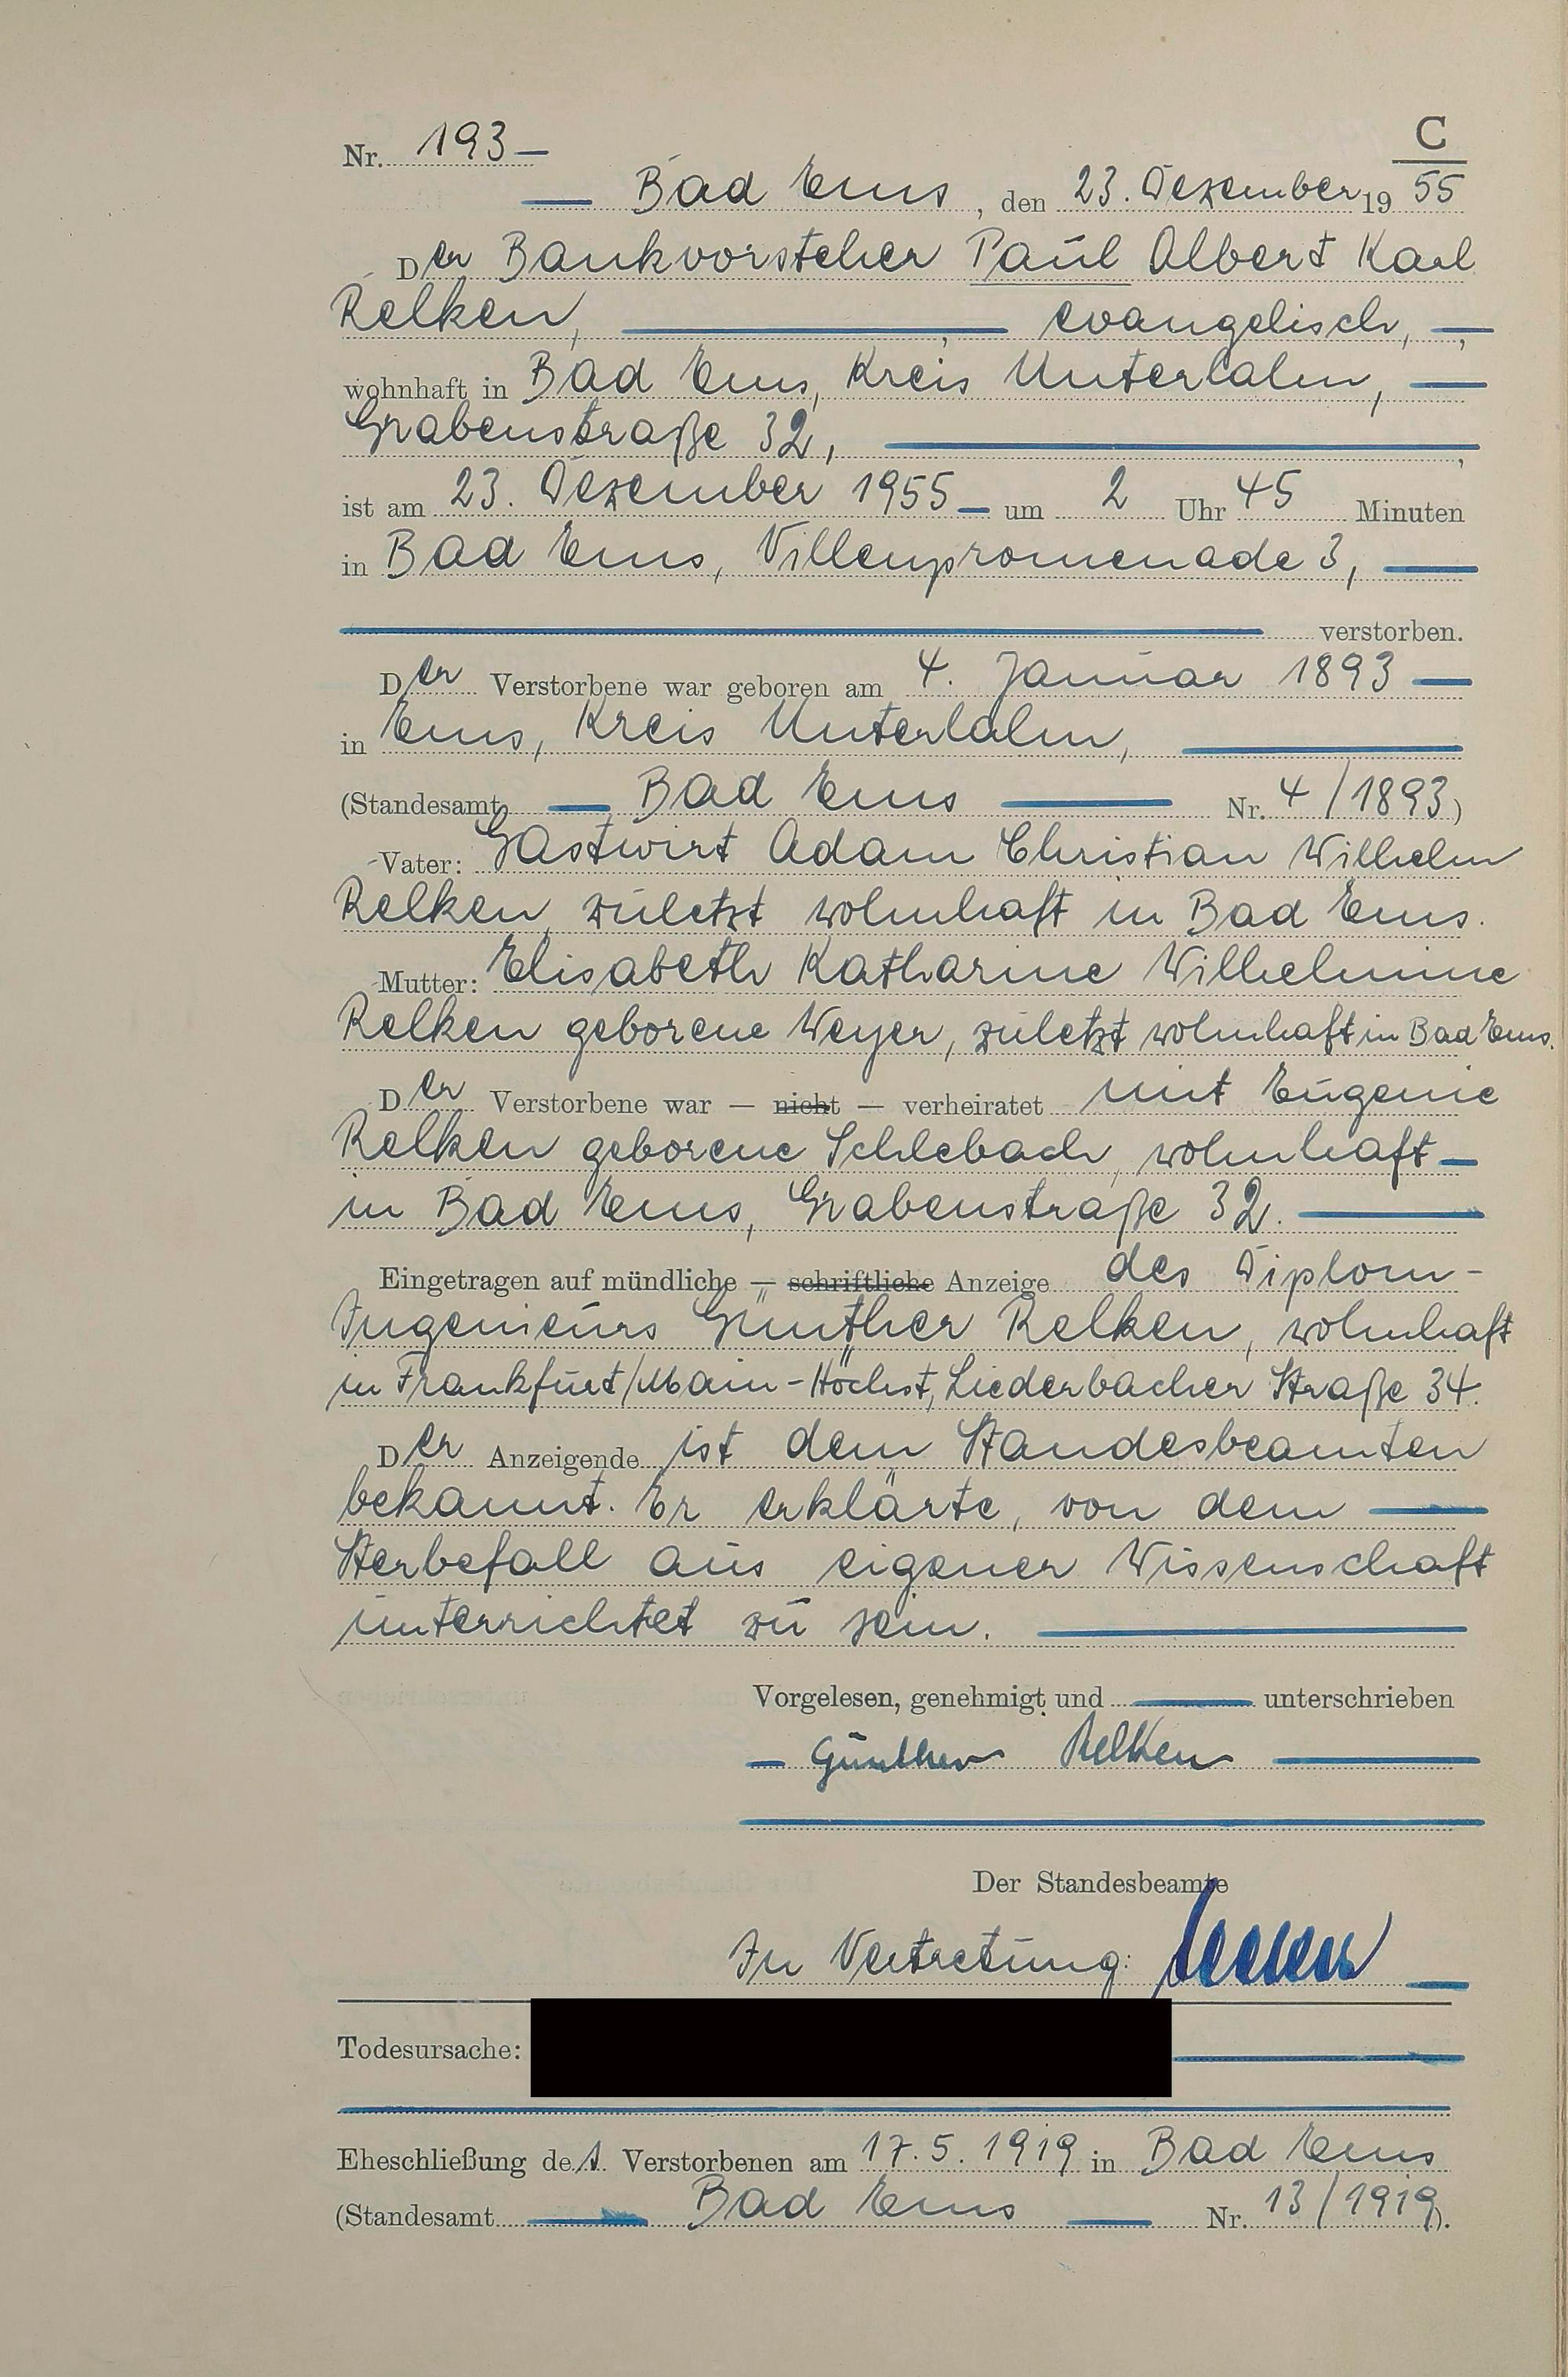 C
Nr. 193 —
— Bad Ems, den 23. Dezember 19 55
Der Bankvorsteher Paul Albert Karl
Relken, — , evangelisch, — ,
wohnhaft in Bad Ems, Kreis Unterlahn, —
Grabenstraße 32, — ,
ist am 23. Dezember 1955 — um 2 Uhr 45 Minuten
in Bad Ems, Villenpromenade 3, —
— verstorben.
Der Verstorbene war geboren am 4. Januar 1893 —
in Ems, Kreis Unterlahn, —
(Standesamt — Bad Ems — Nr. 4/1893)
Vater: Gastwirt Adam Christian Wilhelm
Relken, zuletzt wohnhaft in Bad Ems.
Mutter: Elisabeth Katharine Wilhelmine
Relken geborene Weyer, zuletzt wohnhaft in Bad Ems.
Der Verstorbene war — nicht — verheiratet mit Eugenie
Relken geborene Schlebach, wohnhaft —
in Bad Ems, Grabenstraße 32. —
Eingetragen auf mündliche — schriftliche Anzeige des Diplom-
Ingenieurs Günther Relken, wohnhaft
in Frankfurt/Main-Höchst, Liederbacher Straße 34.
Der Anzeigende ist dem Standesbeamten
bekannt. Er erklärte, von dem —
Sterbefall aus eigener Wissenschaft
unterrichtet zu sein. —
Vorgelesen, genehmigt und — unterschrieben
— Günther Relken —
Der Standesbeamte
In Vertretung: —
Todesursache: —
Eheschließung des Verstorbenen am 17.5.1919 in Bad Ems
(Standesamt — Bad Ems — Nr. 13/1919).